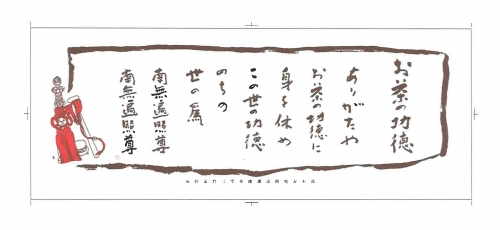 お茶の功徳
ありがたや
お茶の功徳に
身を休め
この世の功徳
のちの
世の為
南無遍照尊
南無遍照尊